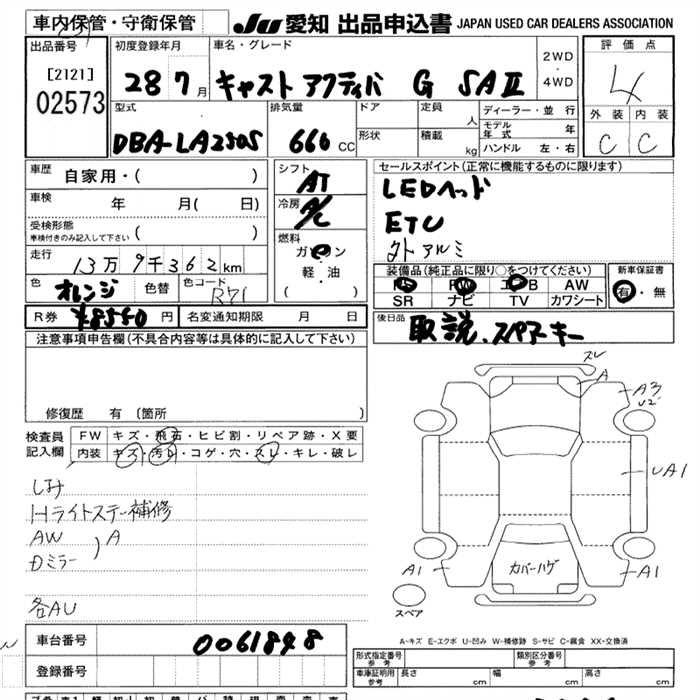 車内保管・守衛保管
JU 愛知 出品申込書 JAPAN USED CAR DEALERS ASSOCIATION
出品番号
[2121]
02573
初度登録年月
28 7月
車名・グレード
キャスト アクティバ G SAⅡ
2WD
・
4WD
評価点
4
外装 内装
C C
型式
DBA-LA250S
排気量
660 CC
ドア
形状
定員 人
積載 kg
ディーラー・並行
モデル年式 年
ハンドル 左・右
車歴 自家用・( )
車検 年 月( 日)
受検形態
車検付きのみ記入して下さい ( )
走行 13万9千362km
色 オレンジ 色替 色コード R71
シフト
AT
冷房
A/C
燃料
ガソリン
軽・油
( )
R券 ¥8550円 名変通知期限 月 日
セールスポイント(正常に機能するものに限ります)
LEDヘッド
ETC
社外アルミ
装備品(純正品に限り○をつけてください)
PS PW エアB AW
SR ナビ TV カワシート
新車保証書
有・無
後日品
取説、スペアキー
注意事項申告欄(不具合内容等は具体的に記入して下さい)
修復歴 有 (箇所 )
検査員記入欄
FW キズ・飛石・ヒビ割・リペア跡・X要
内装 キズ・汚れ・コゲ・穴・スレ・キレ・破レ
しみ
Hライトステー補修
AW
Dミラー ) A
各AU
スレ
A
A3
U2
UA1
A1
カバーハゲ
A1
スペア
A-キズ E-エクボ U-凹み W-補修跡 S-サビ C-腐食 XX-交換済
車台番号 0061848
登録番号
形式指定番号
参考
類別区分番号
参考
車庫証明用
参考
長さ cm
幅 cm
高さ cm